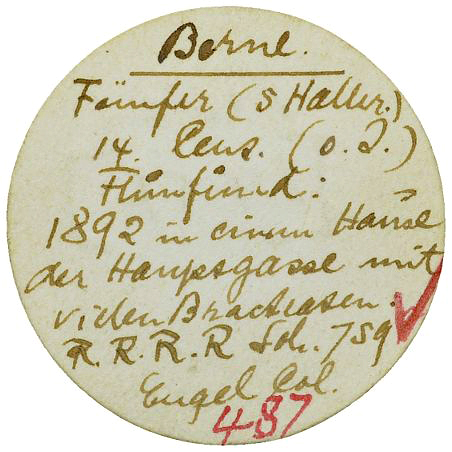 Berne.
Fünfer (5 Haller.)
14. Cens. (o. J.)
1892 in einem Hause
der Haupsgasse mit
vielen Bracteaten.
R. R. R. R Sch. 759
Engel Col.
487